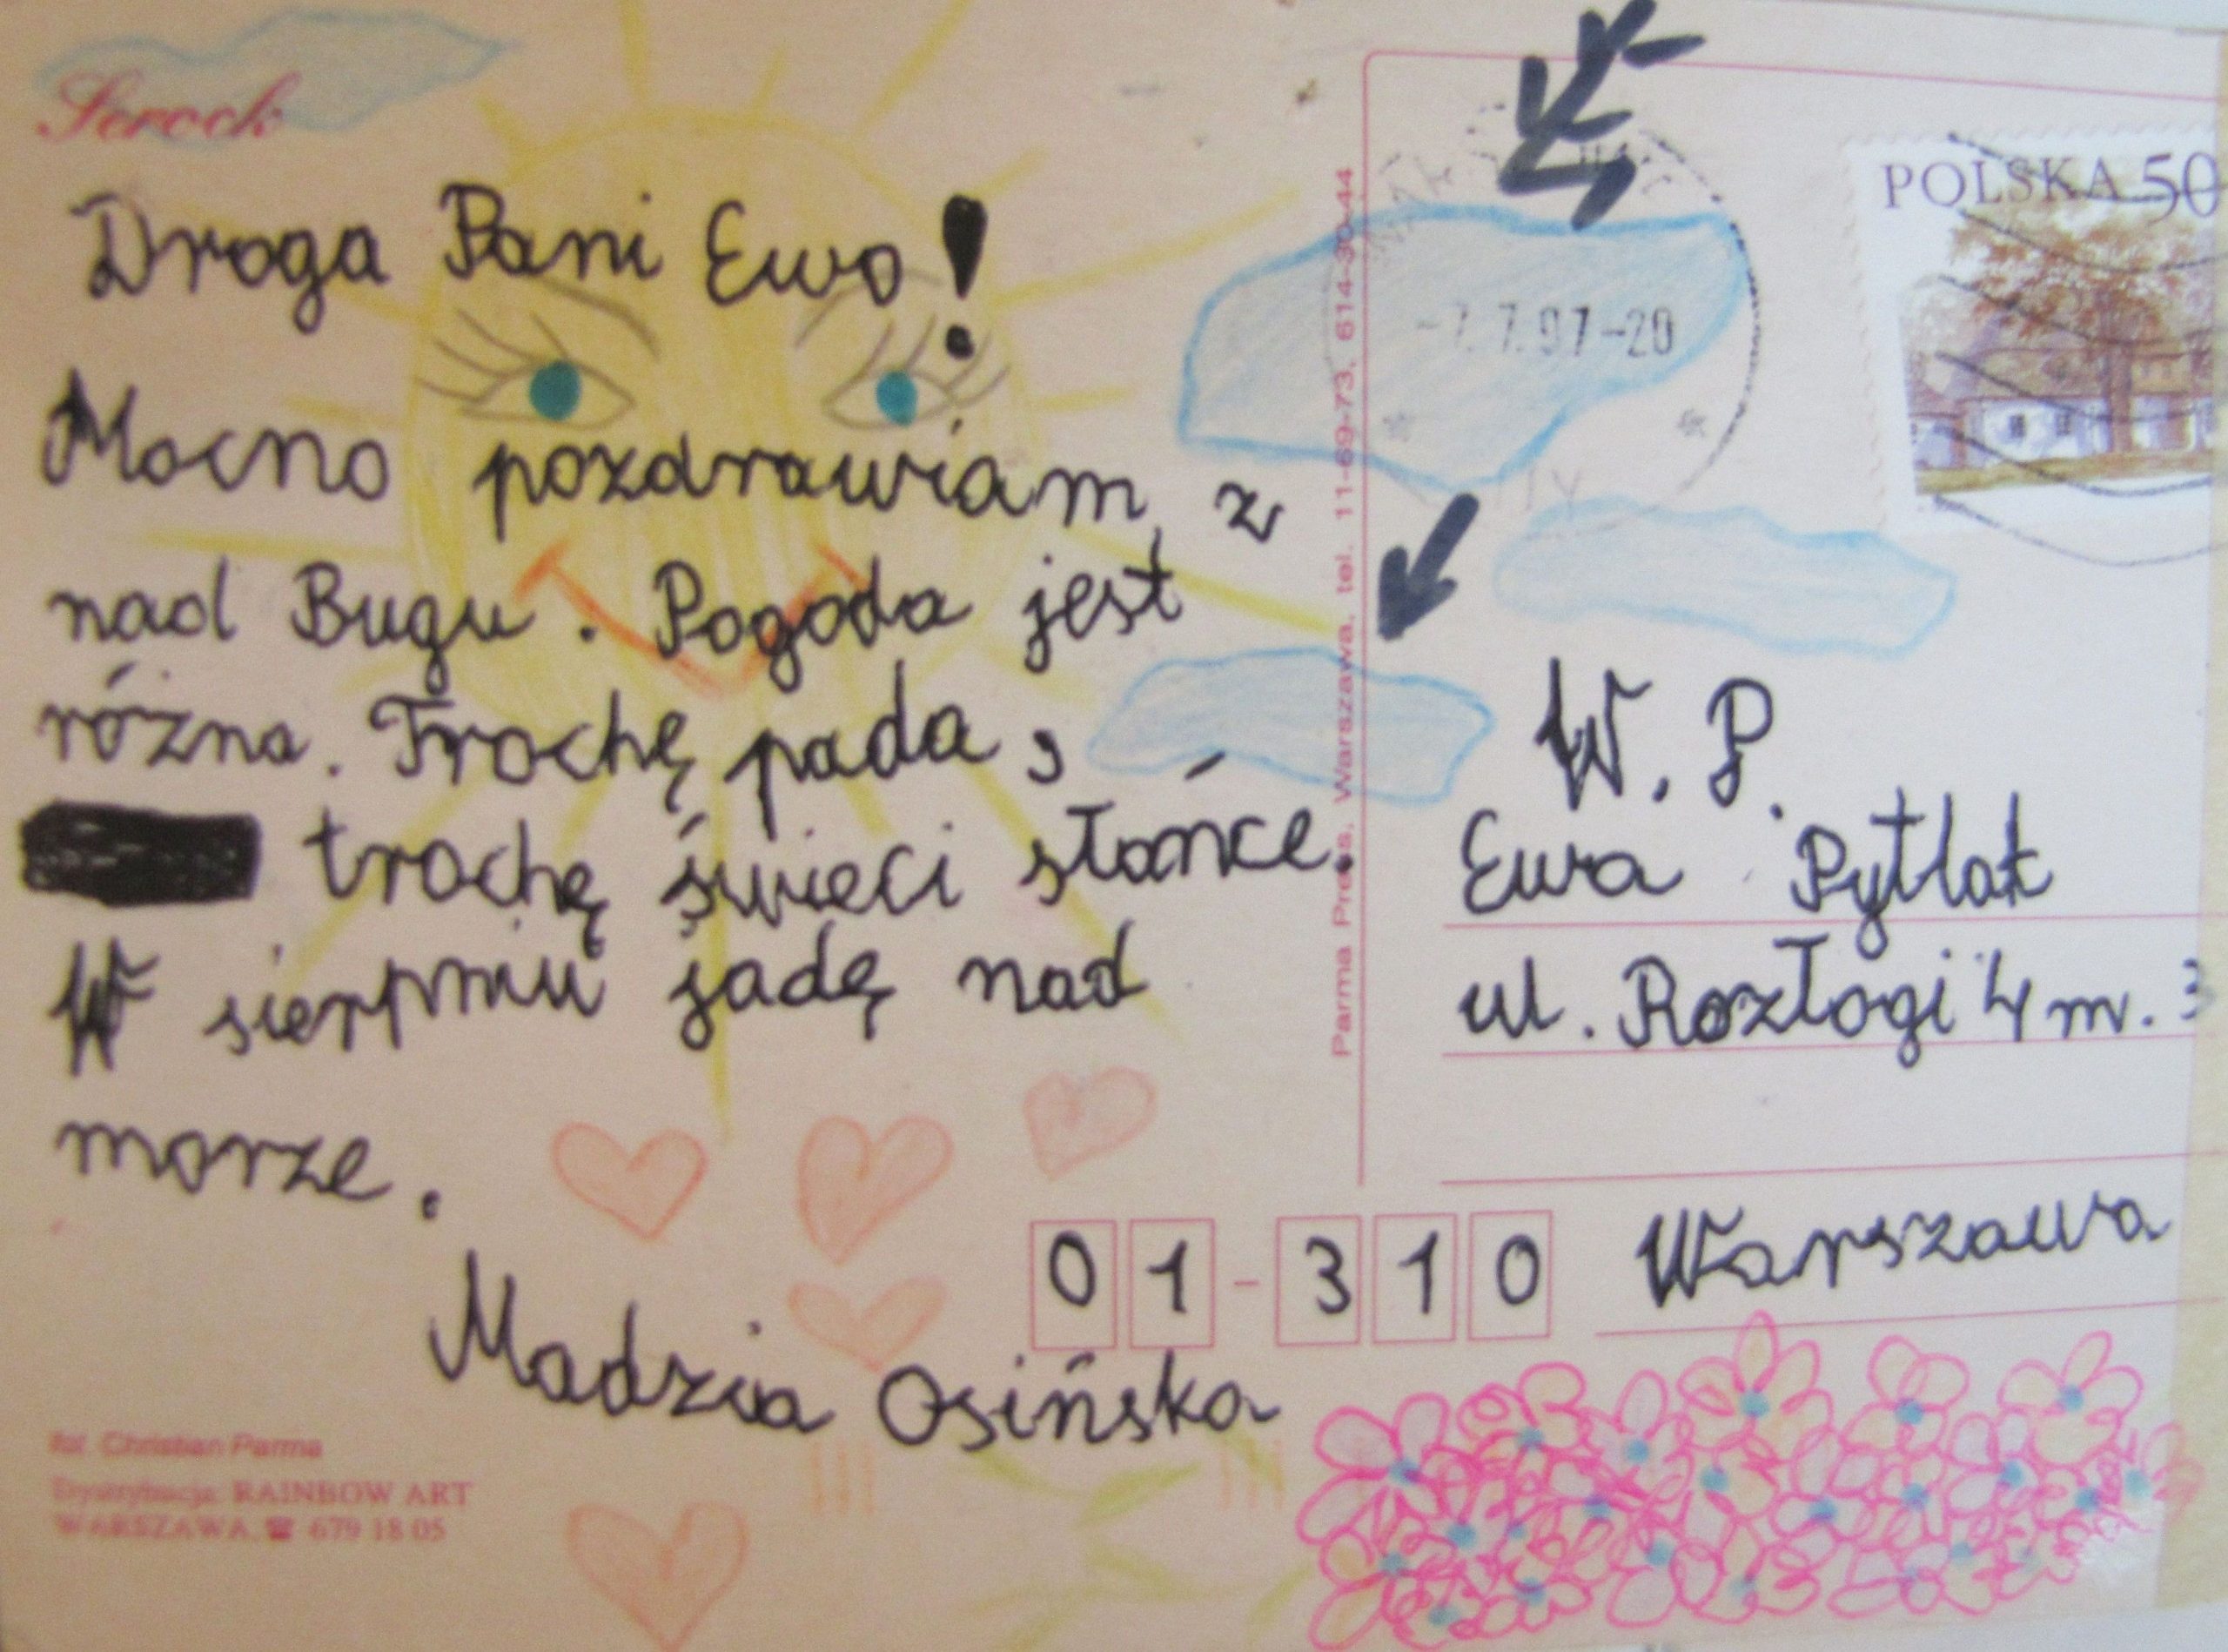 Serock
Droga Pani Ewo!
Mocno pozdrawiam z
nad Bugu. Pogoda jest
różna. Trochę pada,
trochę świeci słońce.
W sierpniu jadę nad
morze.
Madzia Osińska
fot. Christian Parma
Dystrybucja: RAINBOW ART
WARSZAWA ☎ 679 18 05
Parma Press, Warszawa, tel. 11-69-73, 614-30-44
POLSKA 50
-7.7.97-20
W. P.
Ewa Pytlak
ul. Rozłogi 4 m. 3
01-310 Warszawa